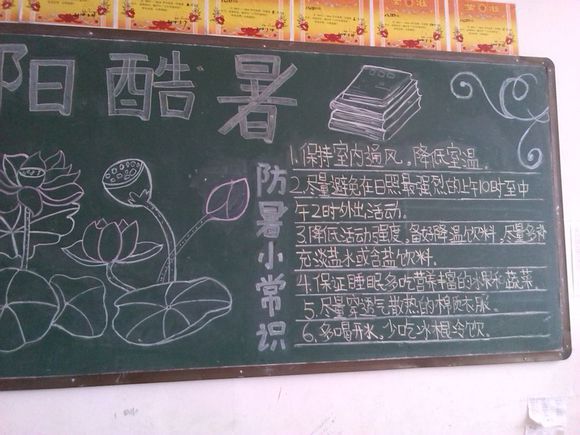 阳酷暑
防暑小常识
1.保持室内通风,降低室温。
2.尽量避免在日照最强烈的上午10时至中
午2时外出活动。
3.降低活动强度,备好降温饮料,尽量多补
充淡盐水或含盐饮料。
4.保证睡眠,多吃营养丰富的水果和蔬菜。
5.尽量穿透气散热的棉质衣服。
6.多喝开水,少吃冰棍冷饮。